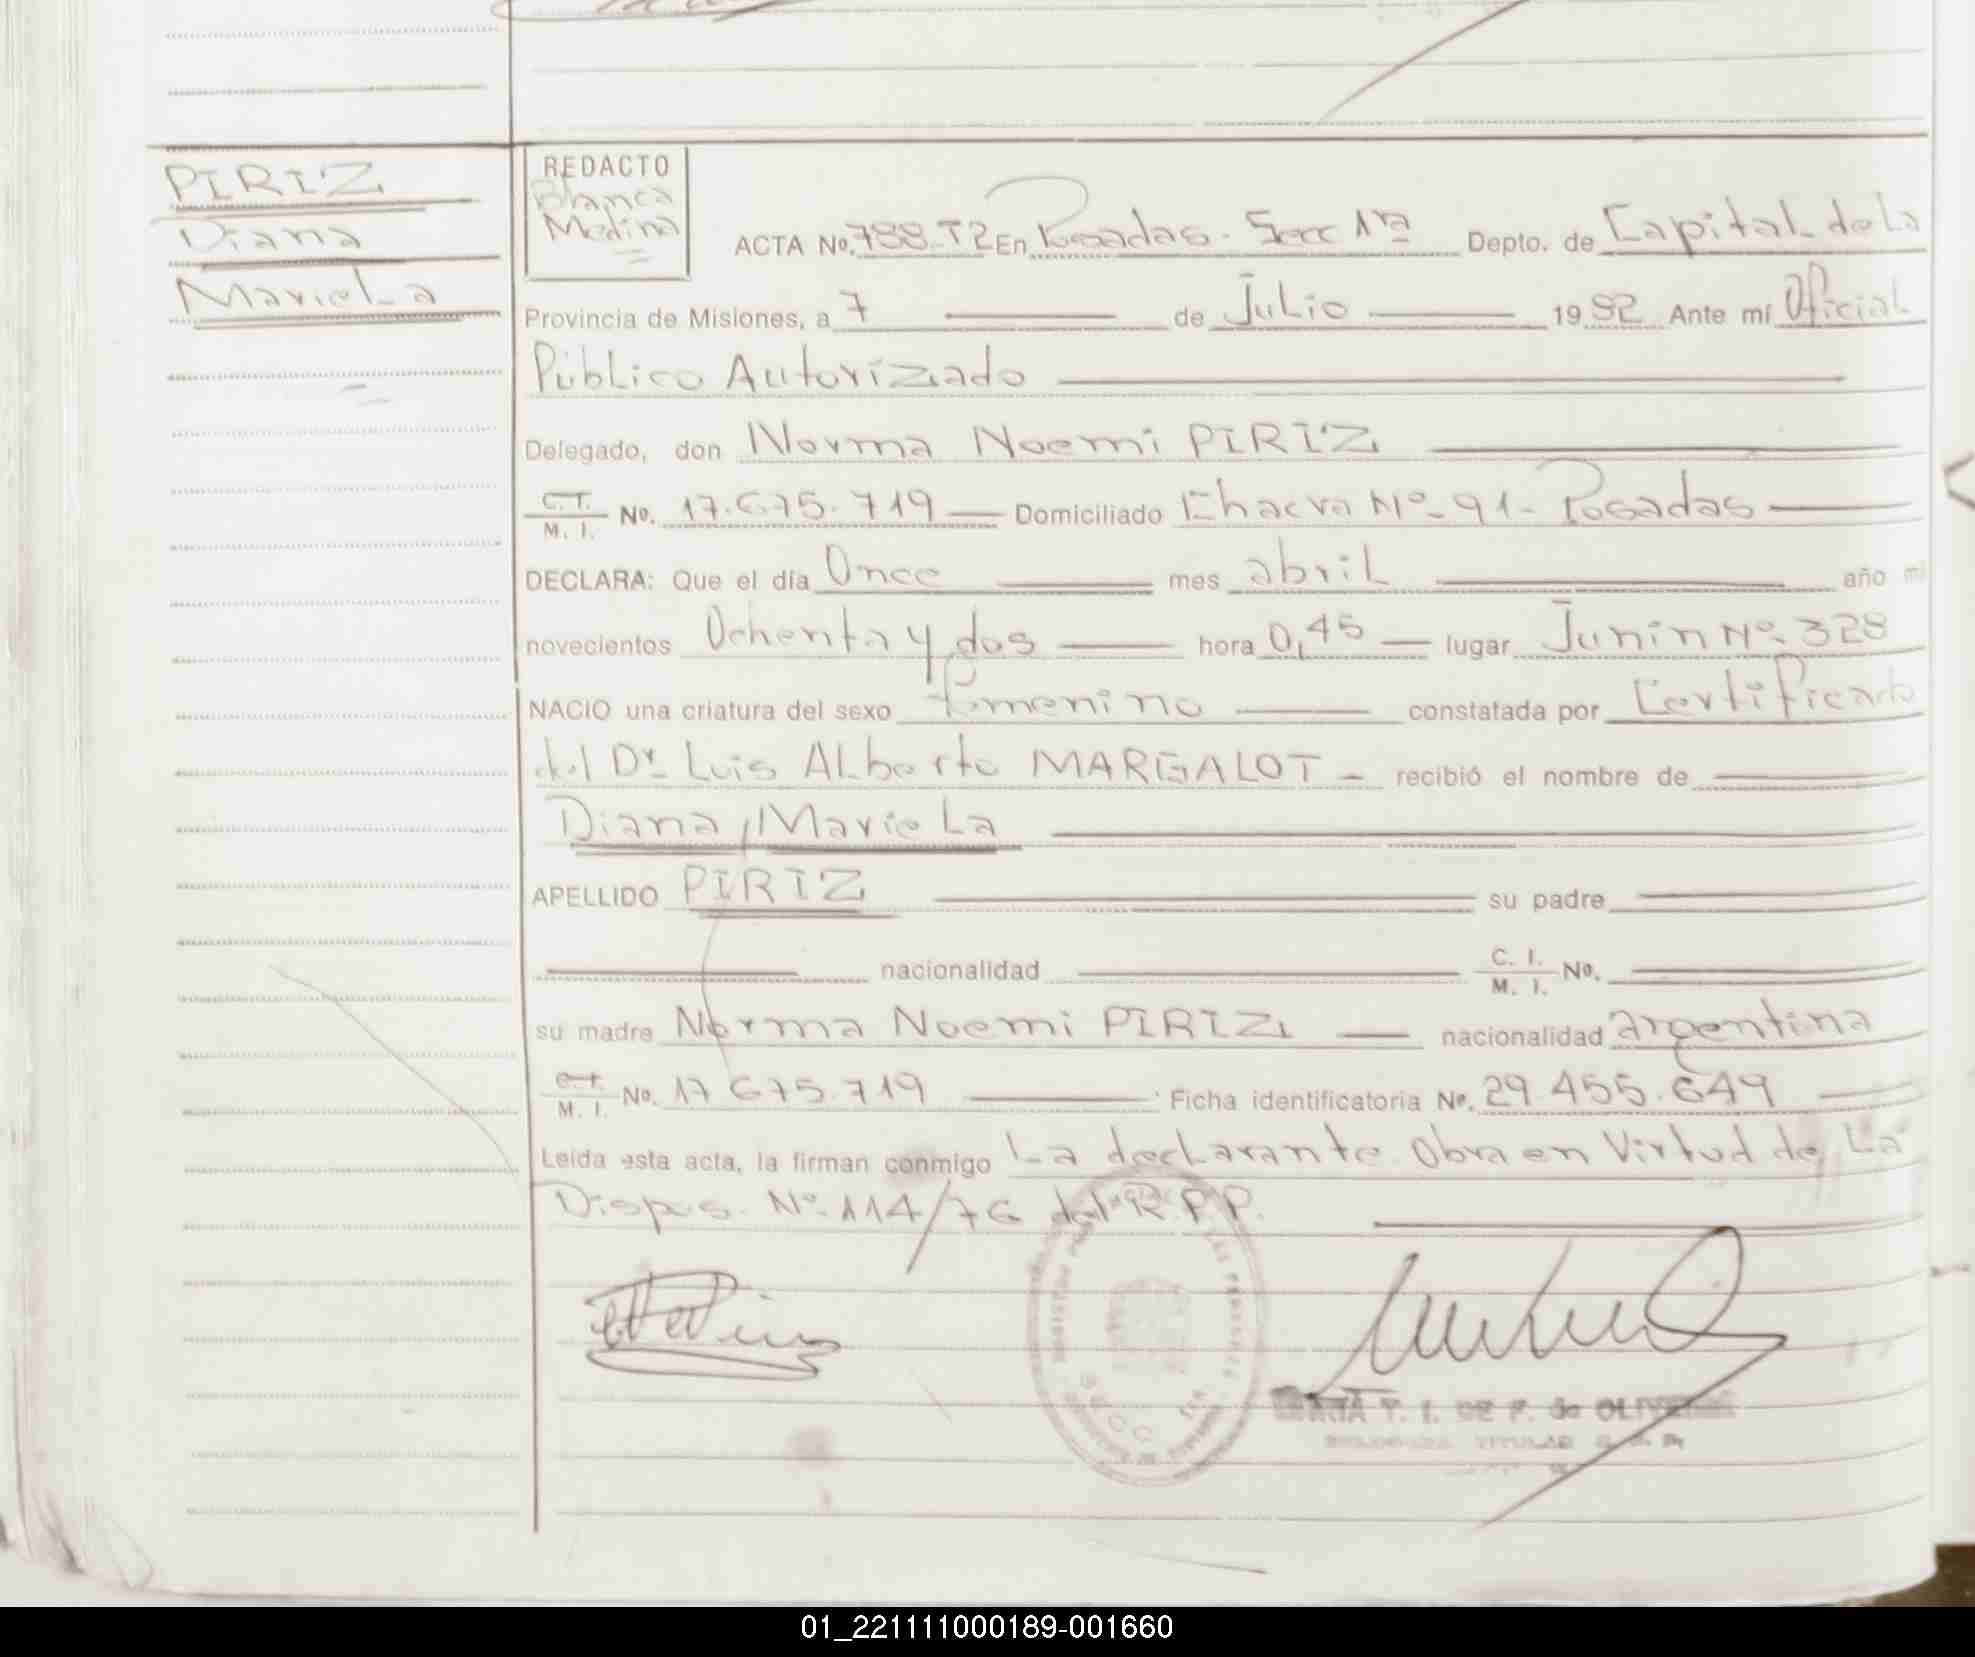 PIRIZ
Diana
Mariela
REDACTO
Blanca
Medina
ACTA No. 788-T2 En Posadas - Secc 1ra Depto. de Capital de la
Provincia de Misiones, a 7 de Julio 19 82 Ante mí Oficial
Público Autorizado
Delegado, don Norma Noemi PIRIZ
C.I. M. I. No. 17.675.719 Domiciliado Chacra Nº 91 - Posadas
DECLARA: Que el día Once mes abril año mi
novecientos Ochenta y dos hora 0,45 lugar Junin Nº 328
NACIO una criatura del sexo femenino constatada por Certificado
del Dr. Luis Alberto MARGALOT - recibió el nombre de
Diana, Mariela
APELLIDO PIRIZ su padre
nacionalidad C. I. M. I. No.
su madre Norma Noemi PIRIZ nacionalidad argentina
C.I. M. I. No. 17 675.719 Ficha identificatoria No. 29.455.649
Leída esta acta, la firman conmigo La declarante. Obra en Virtud de La
Dispos. Nº 114/76 del R.P.P.
T. I. DE P. de OLIVERA
TITULAR
01_221111000189-001660